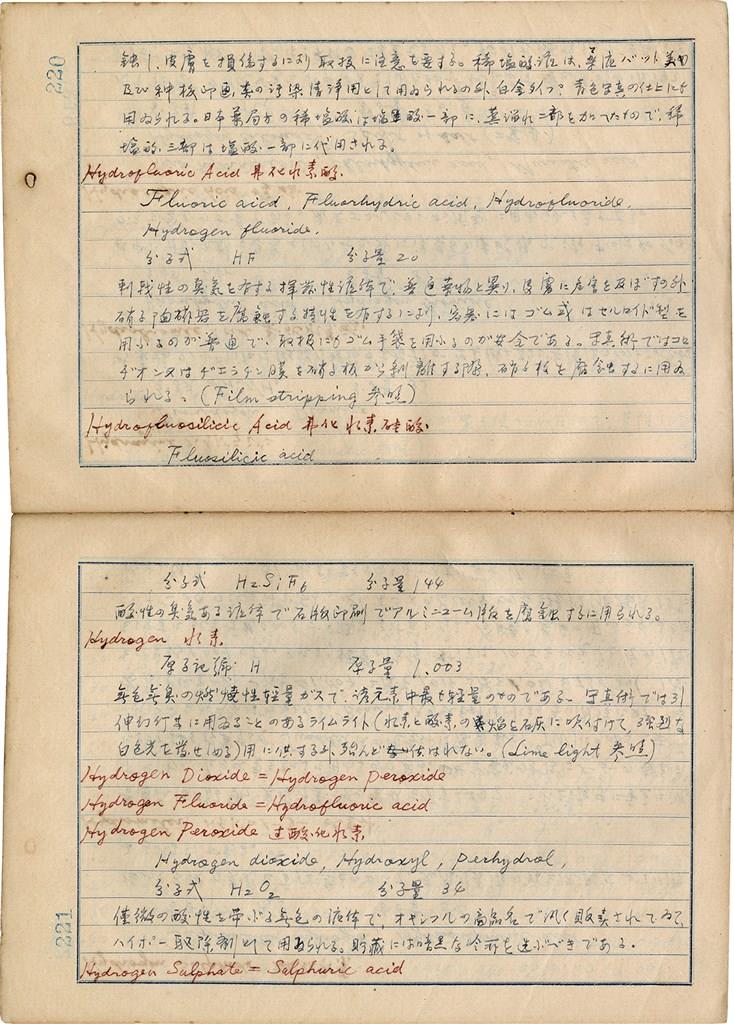 220
蝕し、皮膚を損傷するにより取扱に注意を要する。稀塩酸液は、薬液バット
及び種板印画等の汚染清浄用として用ゐられるの外、白金タイプ、青色写真の仕上にも
用ゐられる。日本薬局方の稀塩酸は塩酸一部に、蒸溜水二部を加へたもので、稀
塩酸三部は塩酸一部に代用される。
Hydrofluoric Acid 弗化水素酸
Fluoric aicd, Fluorhydric acid, Hydrofluoride,
Hydrogen fluoride.
分子式 HF 分子量 20
刺戟性の臭気を有する揮発性液体で、普通薬物と異り、皮膚に危害を及ぼすの外
硝子陶磁器を腐蝕する特性を有するにより、容器にはゴム或はセルロイド製を
用ふるのが普通で、取扱にもゴム手袋を用ふるのが安全である。写真術ではコロ
ヂオン又はヂエラチン膜を硝子板から剥離する際、硝子板を腐蝕するに用ゐ
られる。(Film stripping 参照)
Hydrofluosilicic Acid 弗化水素硅酸
Fluosilicic acid
分子式 H2SiF6 分子量 144
酸性の臭気ある液体で石版印刷でアルミニューム版を腐蝕するに用られる。
Hydrogen 水素
原子記号 H 原子量 1.003
無色無臭の燃焼性軽量ガスで、諸元素中最も軽量のものである。写真術では引
伸幻灯等に用ゐることのあるライムライト(水素と酸素の焔を石灰に吹付けて、強烈な
白色光を発せしめる)用に供する外、殆んど使はれない。(Lime light 参照)
Hydrogen Dioxide = Hydrogen peroxide
Hydrogen Fluoride = Hydrofluoric acid
Hydrogen Peroxide 過酸化水素
Hydrogen dioxide, Hydroxyl, perhydrol,
分子式 H2O2 分子量 34
僅微の酸性を帯ぶる無色の液体で、オキシフルの商品名で汎く販売されてゐて、
ハイポー取除剤として用ゐられる。貯蔵には暗黒な冷所を選ぶべきである。
Hydrogen Sulphate = Salphuric acid
221